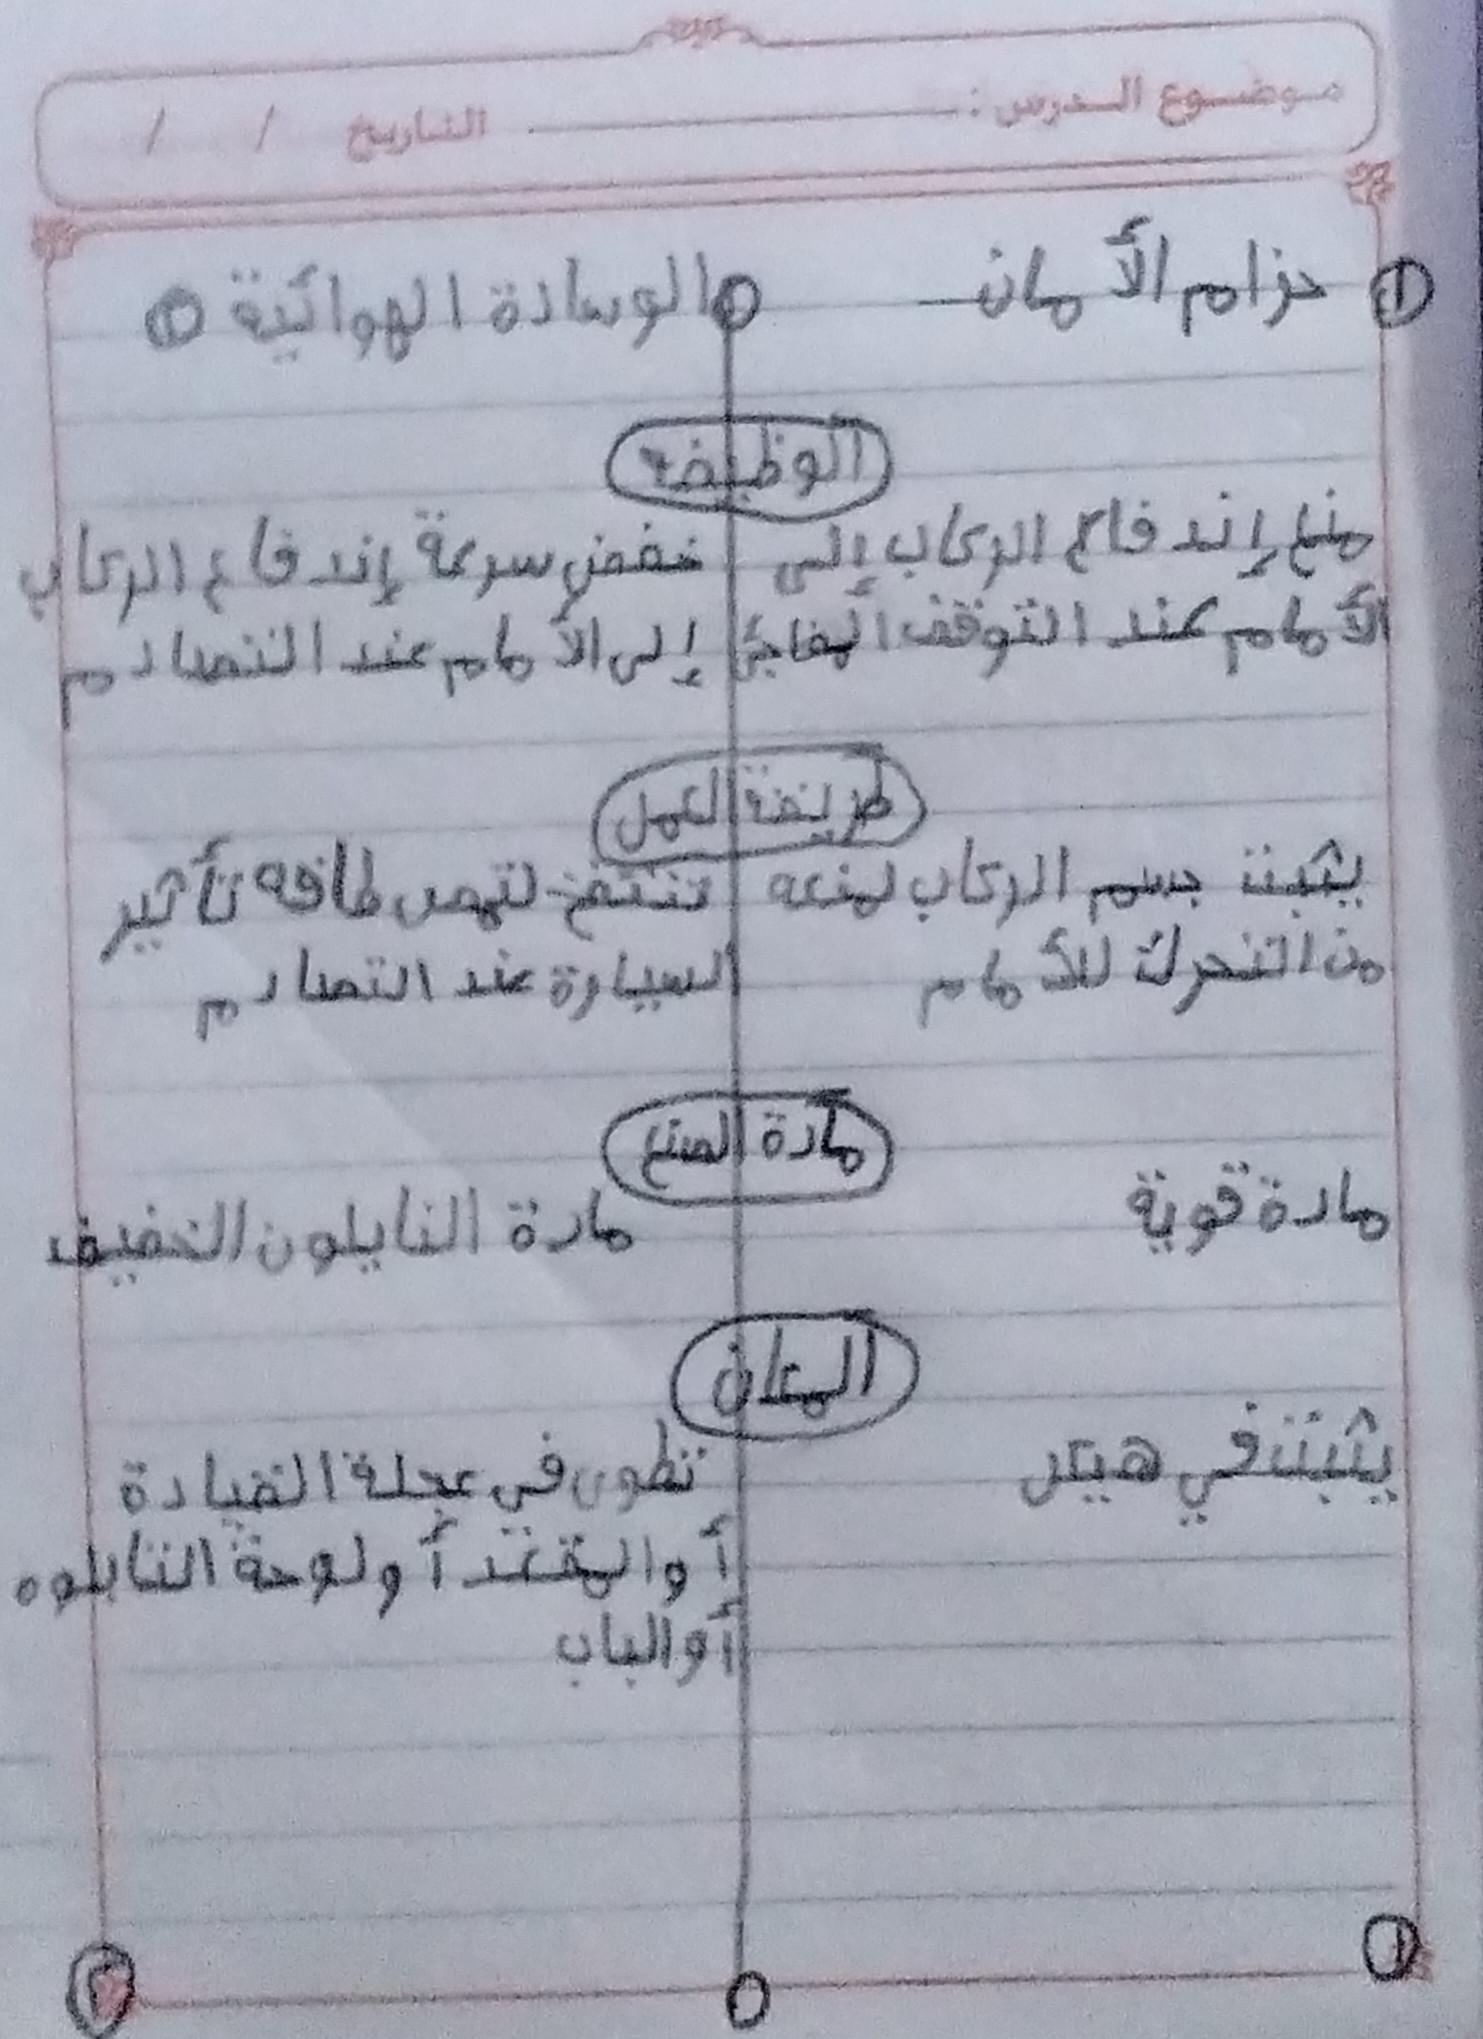 موضوع الدرس : التاريخ / /
① حزام الأمان
الوسادة الهوائية ②
الوظيفة
منع إندفاع الركاب إلى
الأمام عند التوقف المفاجئ
خفض سرعة إندفاع الركاب
إلى الأمام عند التصادم
طريقة العمل
يثبت جسم الركاب لمنعه
من التحرك للأمام
تنتفخ لتمص طاقة تأثير
السيارة عند التصادم
مادة الصنع
مادة قوية
مادة النايلون الخفيف
المكان
يثبت في هيكل
تطوى في عجلة القيادة
أو المقعد أو لوحة التابلوه
أو الباب
①
②